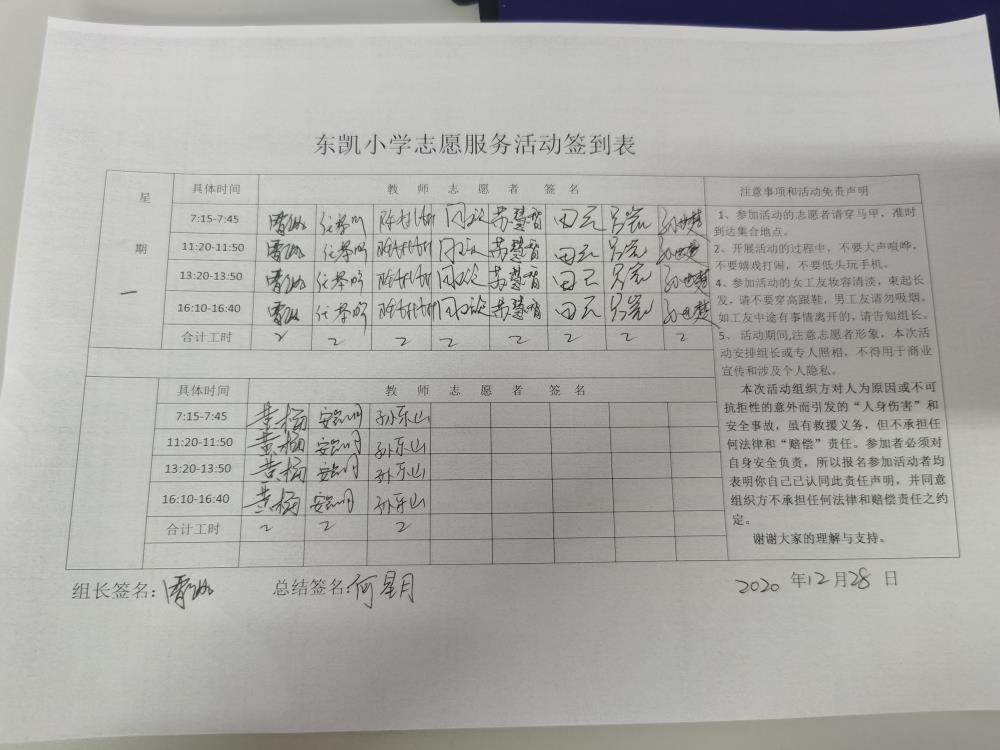 东凯小学志愿服务活动签到表
星期一
具体时间 教师志愿者 签名
7:15-7:45 苏慧智 田云 孙世楚
11:20-11:50 苏慧智 田云 孙世楚
13:20-13:50 苏慧智 田云 孙世楚
16:10-16:40 苏慧智 田云 孙世楚
合计工时 2 2 2 2 2 2 2 2
具体时间 教师志愿者 签名
7:15-7:45 黄杨 孙乐山
11:20-11:50 黄杨 孙乐山
13:20-13:50 黄杨 孙乐山
16:10-16:40 黄杨 孙乐山
合计工时 2 2 2
注意事项和活动免责声明
1、参加活动的志愿者请穿马甲，准时
到达集合地点。
2、开展活动的过程中，不要大声喧哗，
不要嬉戏打闹，不要低头玩手机。
4、参加活动的女工友妆容清淡，束起长
发，请不要穿高跟鞋，男工友请勿吸烟。
如工友中途有事情离开的，请告知组长。
5、活动期间,注意志愿者形象，本次活
动安排组长或专人照相，不得用于商业
宣传和涉及个人隐私。
本次活动组织方对人为原因或不可
抗拒性的意外而引发的“人身伤害”和
安全事故，虽有救援义务，但不承担任
何法律和“赔偿”责任。参加者必须对
自身安全负责，所以报名参加活动者均
表明你自己已认同此责任声明，并同意
组织方不承担任何法律和赔偿责任之约
定。
谢谢大家的理解与支持。
组长签名： 总结签名：何星月
2020 年12月28 日